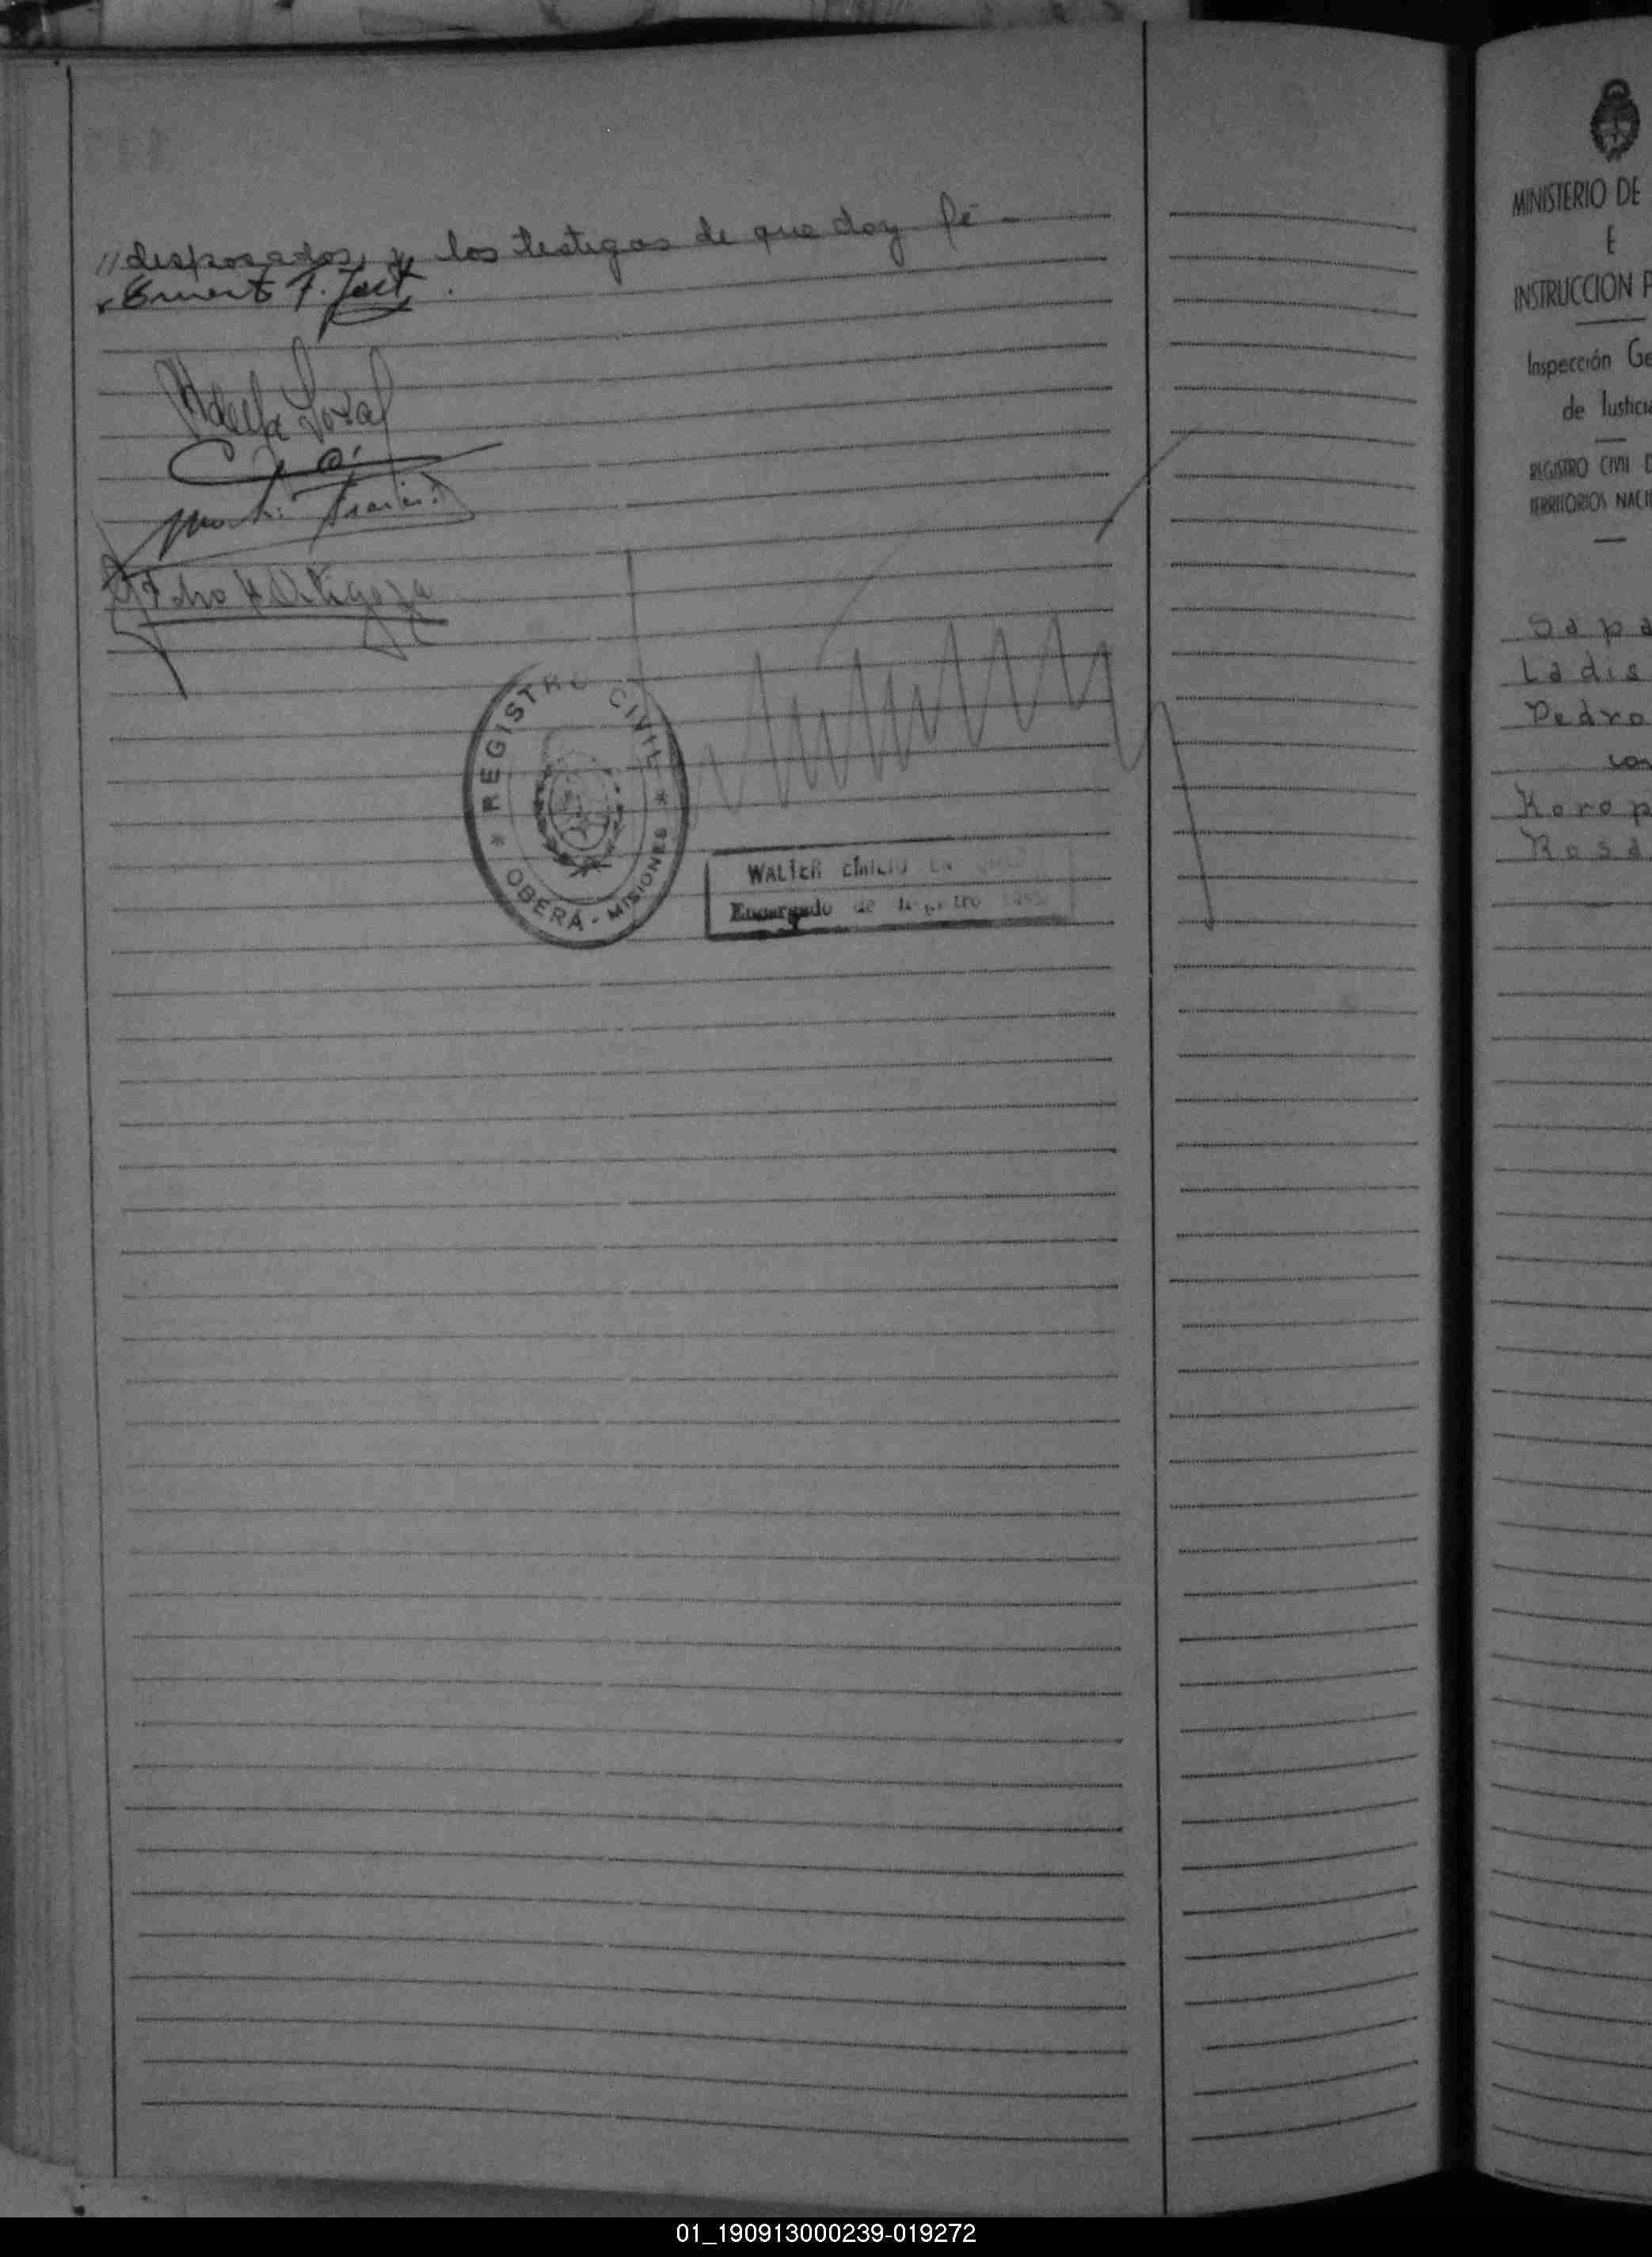 // desposados, y los testigos de que doy fé -
Ernest F. Jost
Adelfa Sosa
REGISTRO CIVIL
* OBERÁ - MISIONES *
WALTER EMILIO
Encargado de Registro Civil
MINISTERIO DE
E
INSTRUCCION P
Inspección Ge
de Justicia
REGISTRO CIVIL D
TERRITORIOS NACI
Sapa
Ladis
Pedro
con
Korop
Rosa
01_190913000239-019272